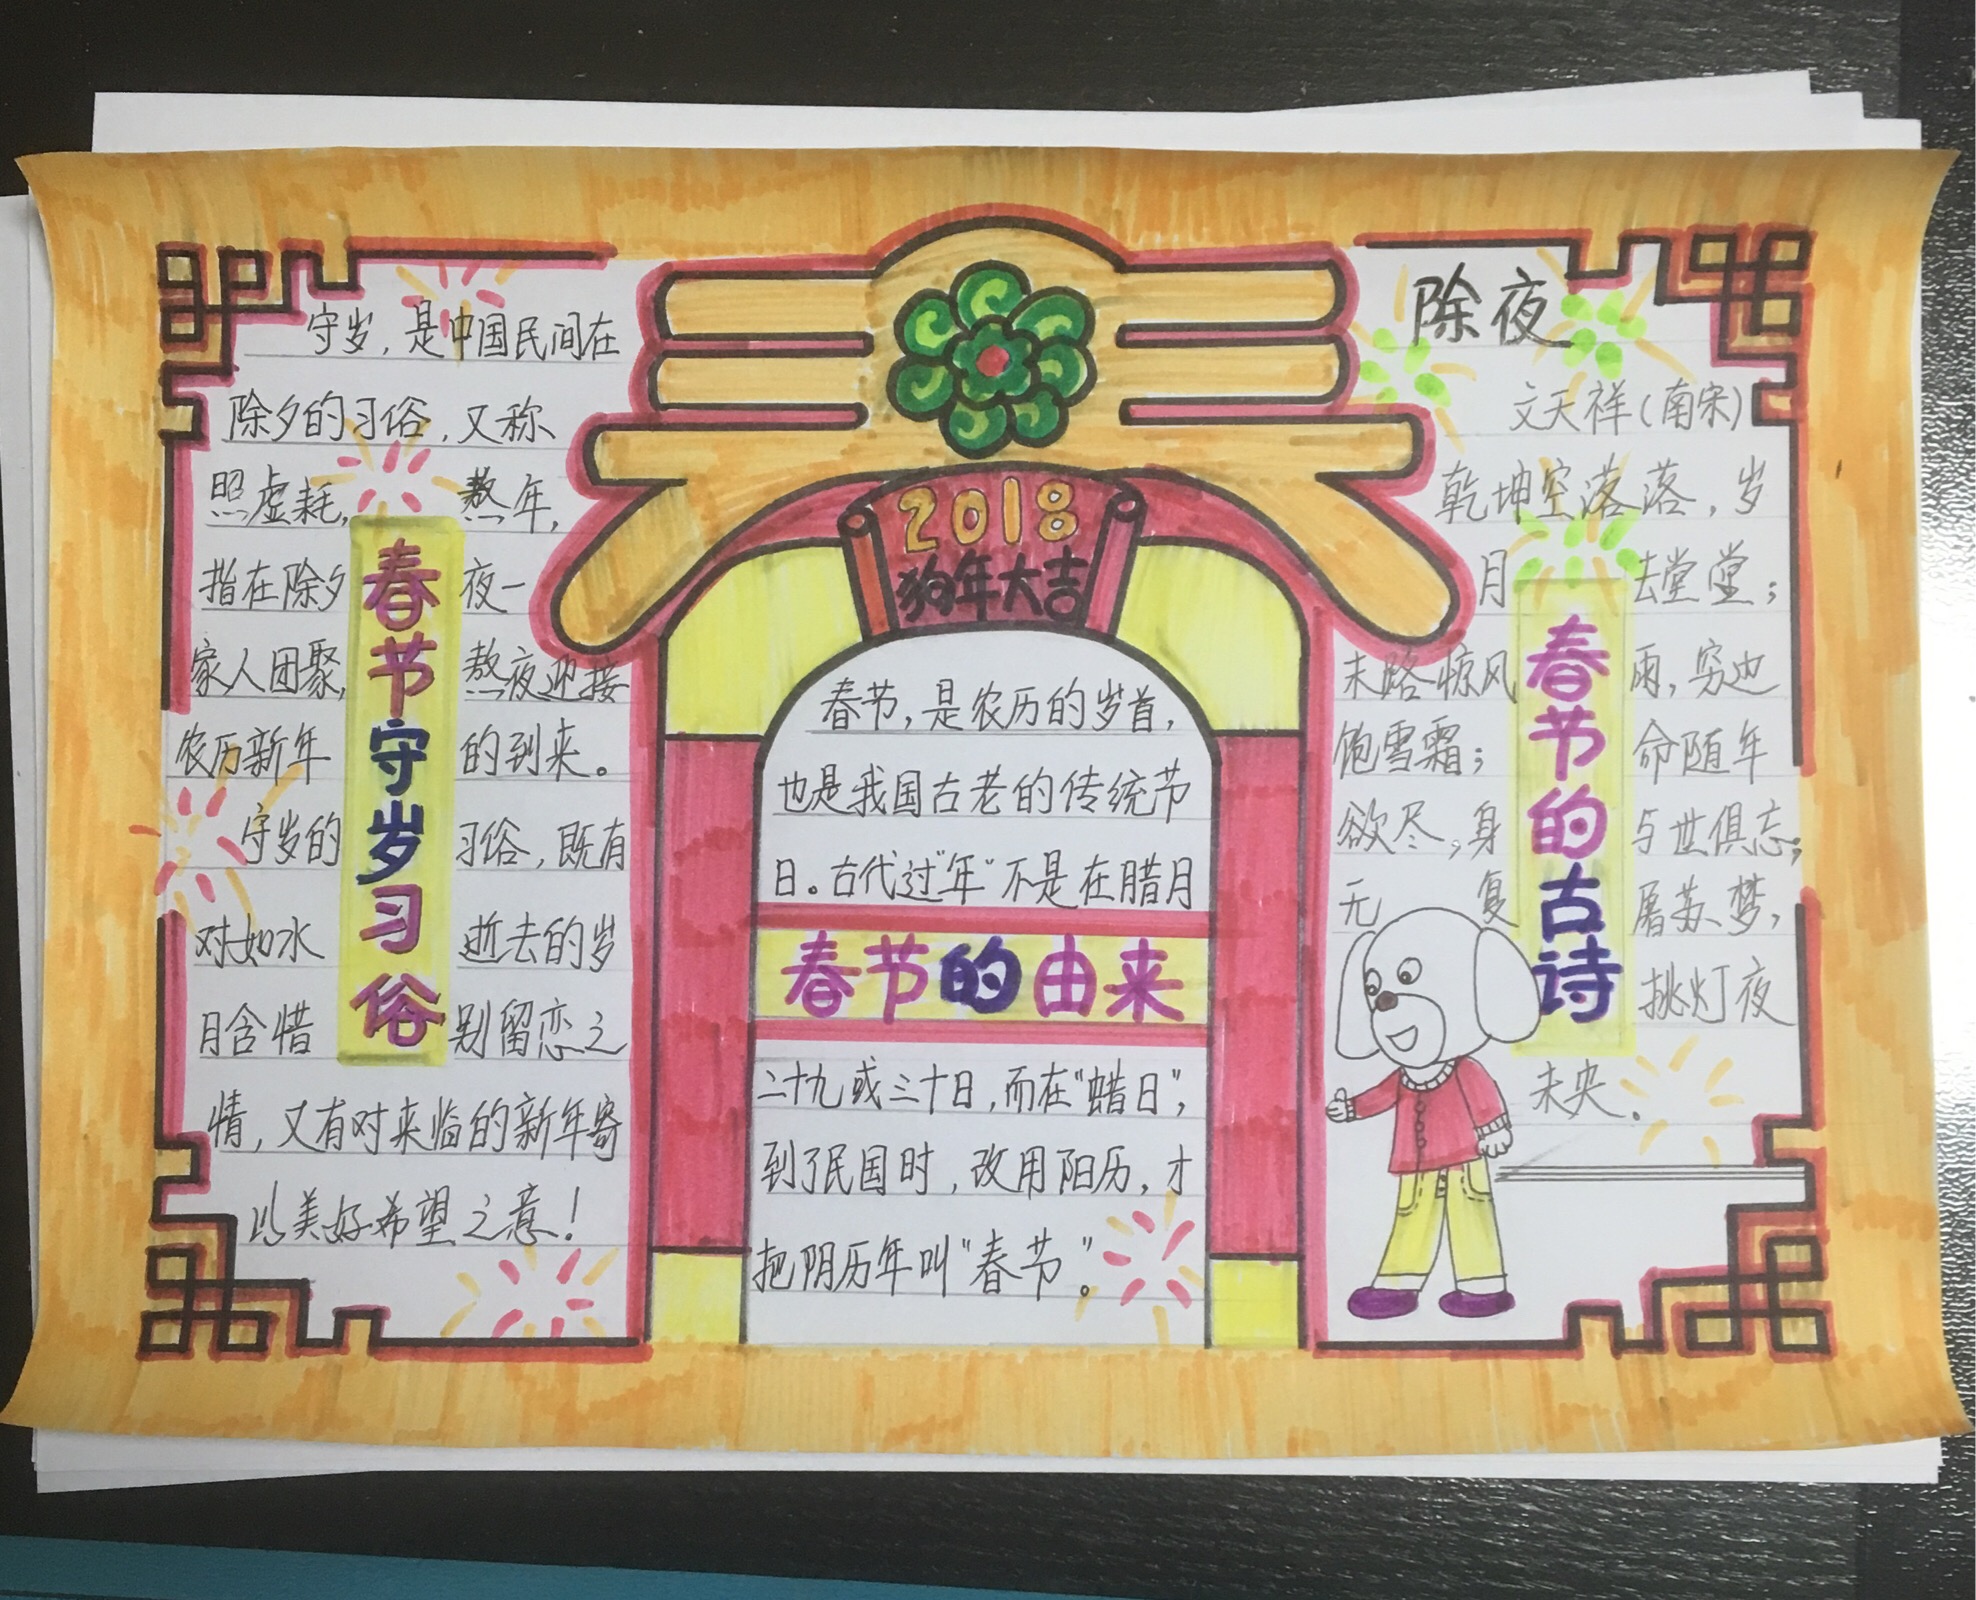 守岁，是中国民间在
除夕的习俗，又称
照虚耗，熬年，
指在除夕夜一
家人团聚，熬夜迎接
农历新年的到来。
守岁的习俗，既有
对如水逝去的岁
月含惜别留恋之
情，又有对来临的新年寄
以美好希望之意！
春节守岁习俗
2018
狗年大吉
春节，是农历的岁首，
也是我国古老的传统节
日。古代过“年”不是在腊月
春节的由来
二十九或三十日，而在“蜡日”，
到了民国时，改用阳历，才
把阴历年叫“春节”。
除夜
文天祥（南宋）
乾坤空落落，岁
月去堂堂；
末路惊风雨，穷边
饱雪霜；命随年
欲尽，身与世俱忘；
无复屠苏梦，
挑灯夜
未央．
春节的古诗